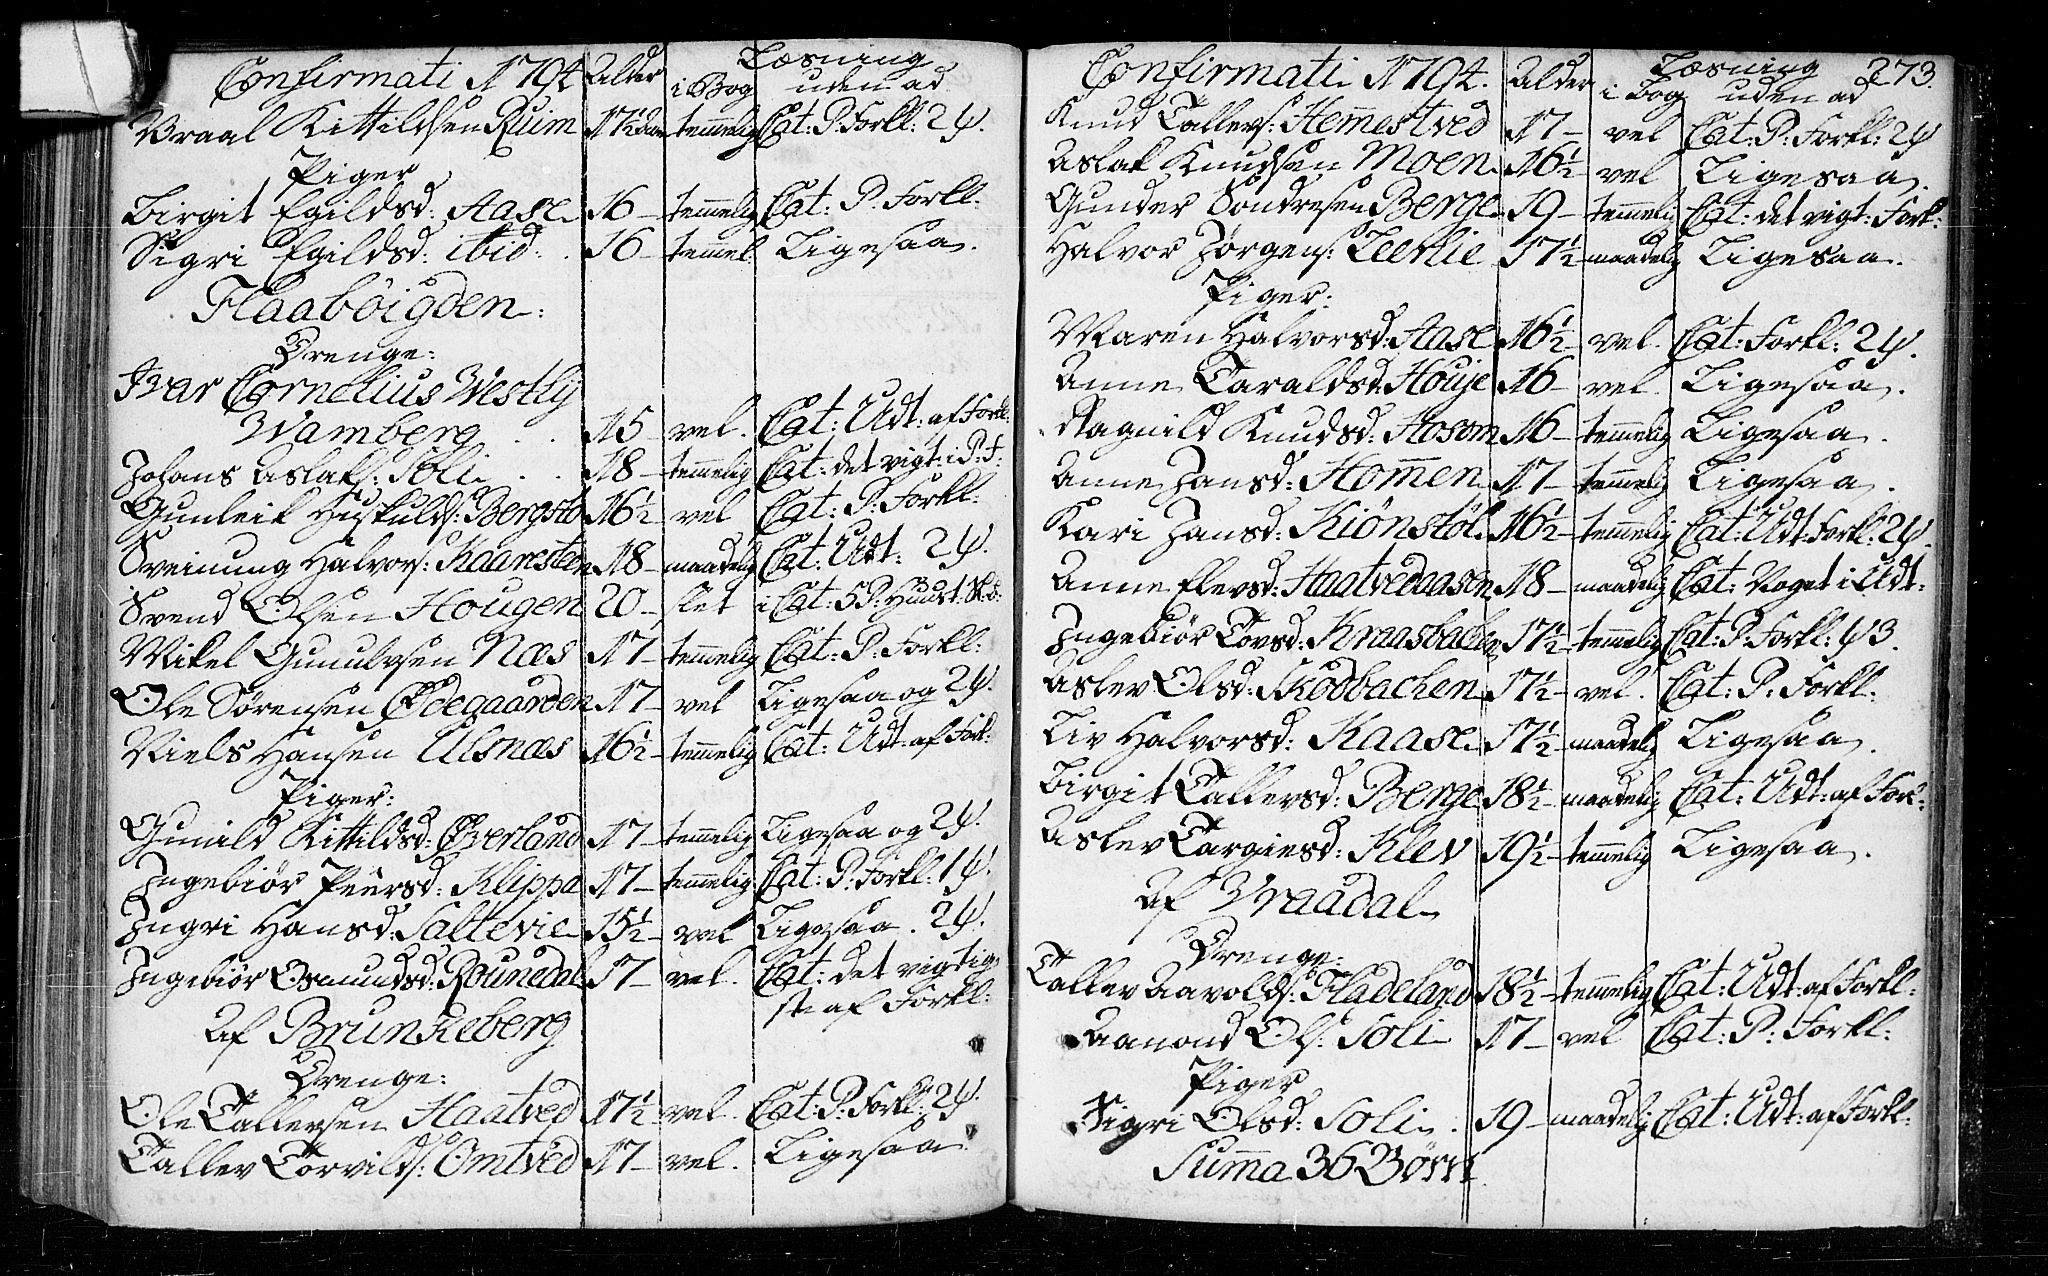 Confirmati 1794 Alder i Bog Læsning uden ad
Vraal Kittilsen Rum 17½ aar temmelig Cat: P: Forkl: 2 ψ.
Piger
Birgit Egildsd: Aase 16 – temmelig Cat: P: Forkl:
Sigri Egildsd: ibid: 16 – temmel Ligesaa.
Flaabøigden:
Drenge:
Ivar Cornelius Westly
Wamberg . . 15 – vel. Cat: Udt: af Forkl:
Johans Aslaks: Soli . . 18 – temmelig Cat: det vigt: i P: F:
Gunleik Huskulds: Bergstø 16½ vel Cat: P: Forkl:
Sveinung Halvors: Kaaresten 18 – maadelig Cat: Udt: 2 ψ.
Svend Olsen Hougen 20 – slet i Cat: 5 P:
Mikel Gunulvsen Næs 17 – temmelig Cat: P: Forkl:
Ole Sørensen Ødegaarden 17 – vel Ligesaa og 2 ψ.
Niels Hansen Ulsnæs 16½ – temmelig Cat: Udt: af Fork:
Piger:
Gunild Kittildsd: Øverland 17 – temmelig Ligesaa og 2 ψ.
Ingebiør Peersd: Klippa 17 – temmelig Cat: P: Forkl: 1 ψ.
Ingri Hansd: Saltevie 15½ – vel Ligesaa. 2 ψ.
Ingebiør Osmundsd: Rounedal 17 – vel. Cat: det vigtig
ste af Forkl:
Af Brunkeberg
Drenge:
Ole Tallevsen Haatved 17½ – vel. Cat: P: Forkl: 2 ψ.
Tallev Torvilds: Omtved 17 – vel. Ligesaa.
Confirmati 1794. Alder i Bog Læsning uden ad 273.
Knud Tallevs: Hemestved 17 – vel Cat: P: Forkl: 2 ψ
Aslak Knudsen Moen 16½ vel Ligesaa.
Gunder Sondresen Berge 19 – temmelig Cat: det vigt: Fork:
Halvor Jørgens: Leerlie 17½ – maadelig Ligesaa.
Piger:
Maren Halvorsd: Aase 16½ – vel. Cat: Forkl: 2 ψ.
Anne Taraldsd: Houje 16 – vel Ligesaa.
Ragnild Knudsd: Aosom 16 – temmelig Ligesaa.
Anne Jansd: Homen 17 – temmelig Ligesaa.
Kari Jansd: Kiønstøl 16½ – temmelig Cat: Udt: Forkl: 2 ψ.
Anne Elevsd: Haatvedaasen 18 – maadelig Cat: Noget i Udt:
Ingebiør Tovsd: Kraasbachen 17½ – temmelig Cat: P: Forkl: ψ 3.
Aslev Olsd: Skodbachen 17½ – vel. Cat: P: Forkl:
Liv Halvorsd: Kaase 17½ – maadelig Ligesaa.
Birgit Tallevsd: Berge 18½ – maadelig Cat: Udt: af For:
Aslev Targiesd: Klev 19½ – temmelig Ligesaa.
Af Vraadal
Drenge:
Tallev Aavolds: Fladeland 18½ – temmelig Cat: Udt: af Forkl:
Aanond Ols: Soli 17 – vel Cat: P: Forkl:
Piger
Sigri Olsd: Soli . 19 – maadelig Cat: Udt: af Forkl:
Summa 36 Børn